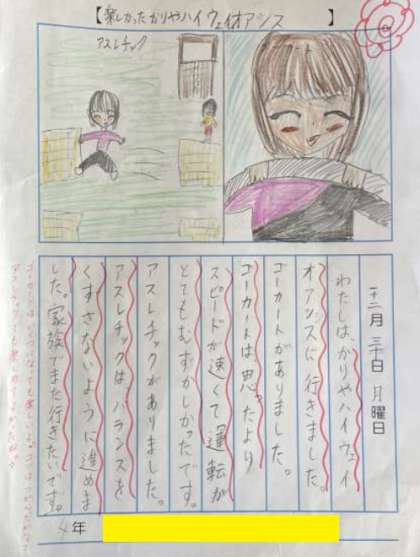 【楽しかったかりやハイウェイオアシス】
アスレチック
十二月三十日月曜日
わたしは、かりやハイウェイ
オアシスに行きました。
ゴーカートがありました。
ゴーカートは思ったより
スピードが速くて運転が
とてもむずかしかったです。
アスレチックがありました。
アスレチックは、バランスを
くずさないように進めま
した。家族でまた行きたいです。
4年